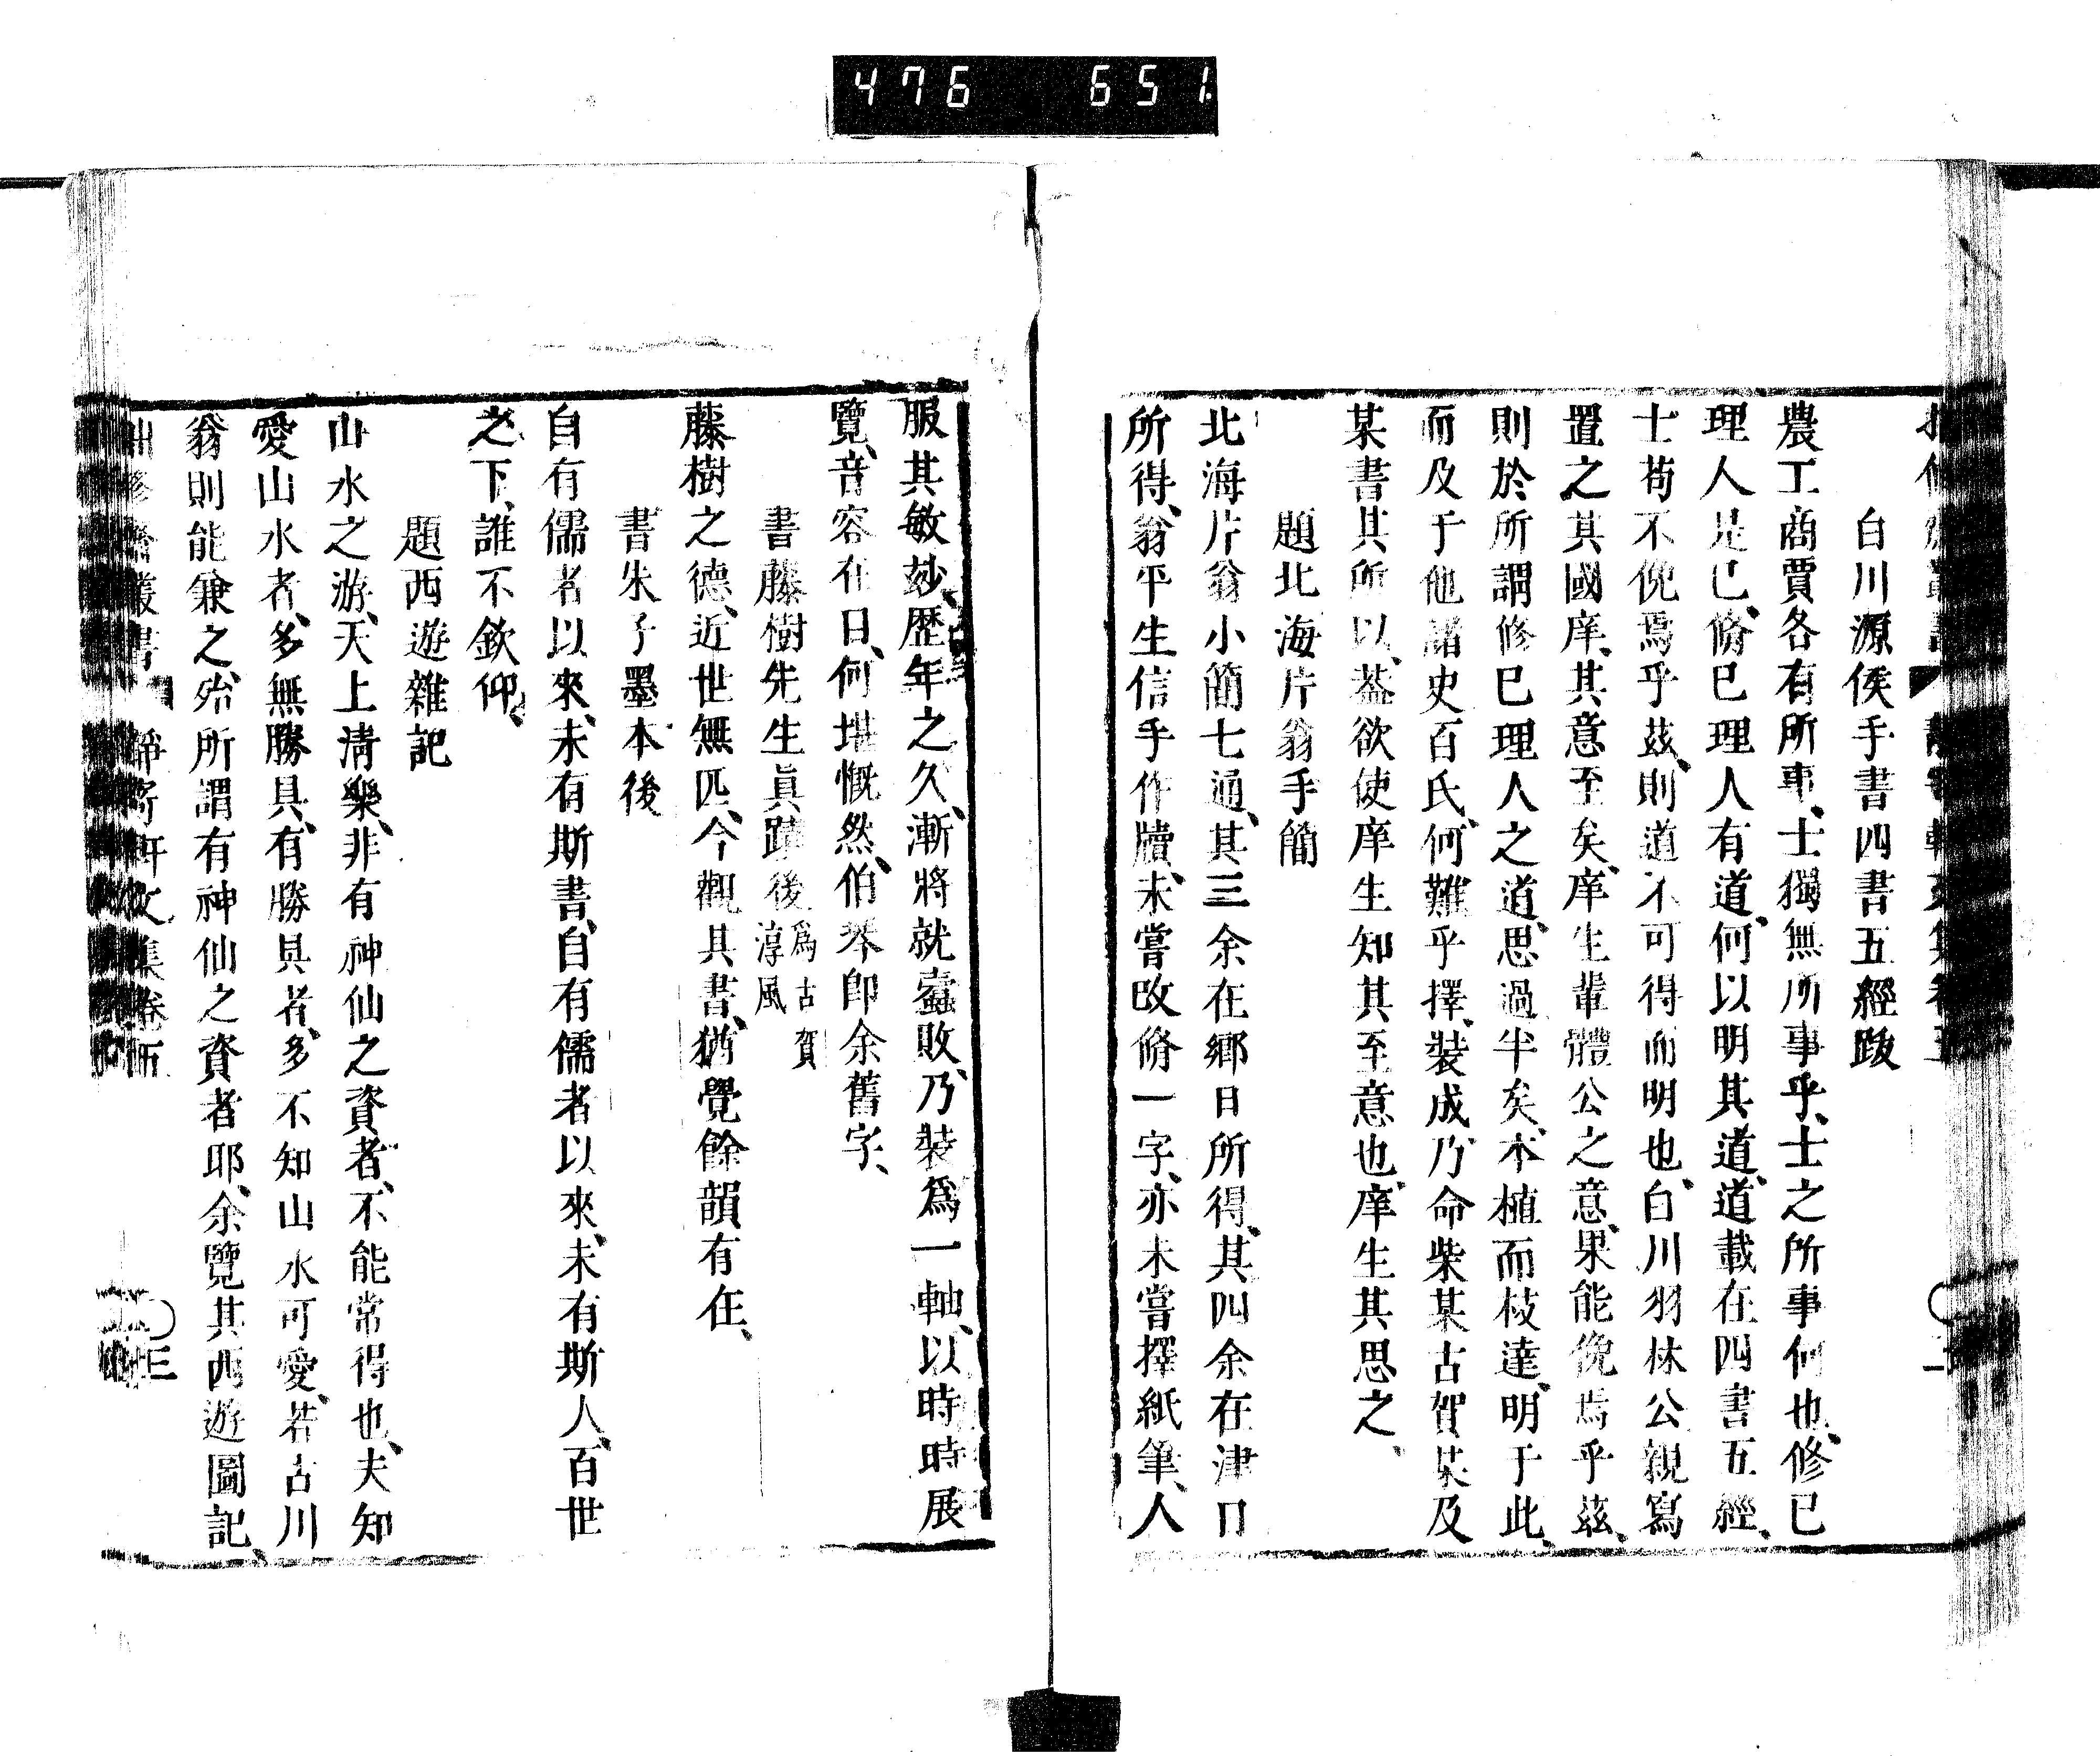 476 651
白川源侯手書四書五經跋
農工商賈各有所事、士獨無所事乎、士之所事何也、修已
理人是已、脩已理人有道、何以明其道、道載在四書五經、
士苟不俛焉乎茲、則道不可得而明也、白川羽林公親寫
置之其國庠、其意至矣、庠生輩體公之意、果能俛焉乎茲、
則於所謂修已理人之道、思過半矣、本植而枝達、明于此、
而及于他諸史百氏、何難乎擇、裝成、乃命柴某古賀某及
某書其所以、葢欲使庠生知其至意也、庠生其思之、
題北海片翁手簡
北海片翁小簡七通、其三余在鄉日所得、其四余在津日
所得、翁平生信手作牘、未嘗改脩一字、亦未嘗擇紙筆、人
服其敏玅、歷年之久、漸將就蠹敗、乃裝爲一軸、以時時展
覽、音容在日、何堪慨然、伯琴卽余舊字、
書藤樹先生眞蹟後 爲古賀淳風
藤樹之德、近世無匹、今觀其書、猶覺餘韻有在、
書朱子墨本後
自有儒者以來、未有斯書、自有儒者以來、未有斯人、百世
之下、誰不欽仰、
題西遊雜記
山水之游、天上淸樂、非有神仙之資者、不能常得也、夫知
愛山水者、多無勝具、有勝具者、多不知山水可愛、若古川
翁則能兼之、殆所謂有神仙之資者耶、余覽其西遊圖記、
叢書 靜寄軒文集卷五 三